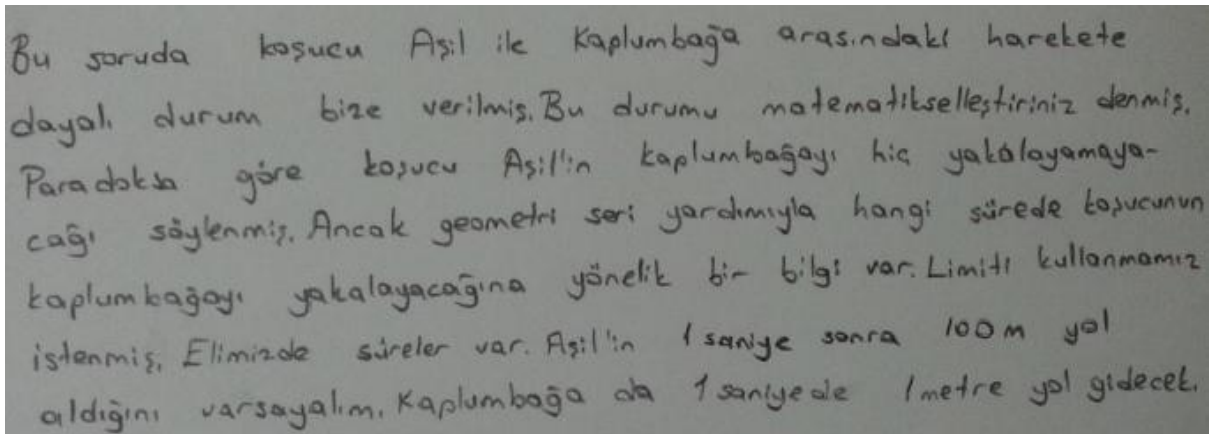 Bu soruda koşucu Aşil ile Kaplumbağa arasındaki harekete
dayalı durum bize verilmiş. Bu durumu matematikselleştiriniz denmiş.
Paradoksa göre koşucu Aşil'in kaplumbağayı hiç yakalayamaya-
cağı söylenmiş. Ancak geometri seri yardımıyla hangi sürede koşucunun
kaplumbağayı yakalayacağına yönelik bir bilgi var. Limiti kullanmamız
istenmiş. Elimizde süreler var. Aşil'in 1 saniye sonra 100 m yol
aldığını varsayalım. Kaplumbağa da 1 saniyede 1 metre yol gidecek.